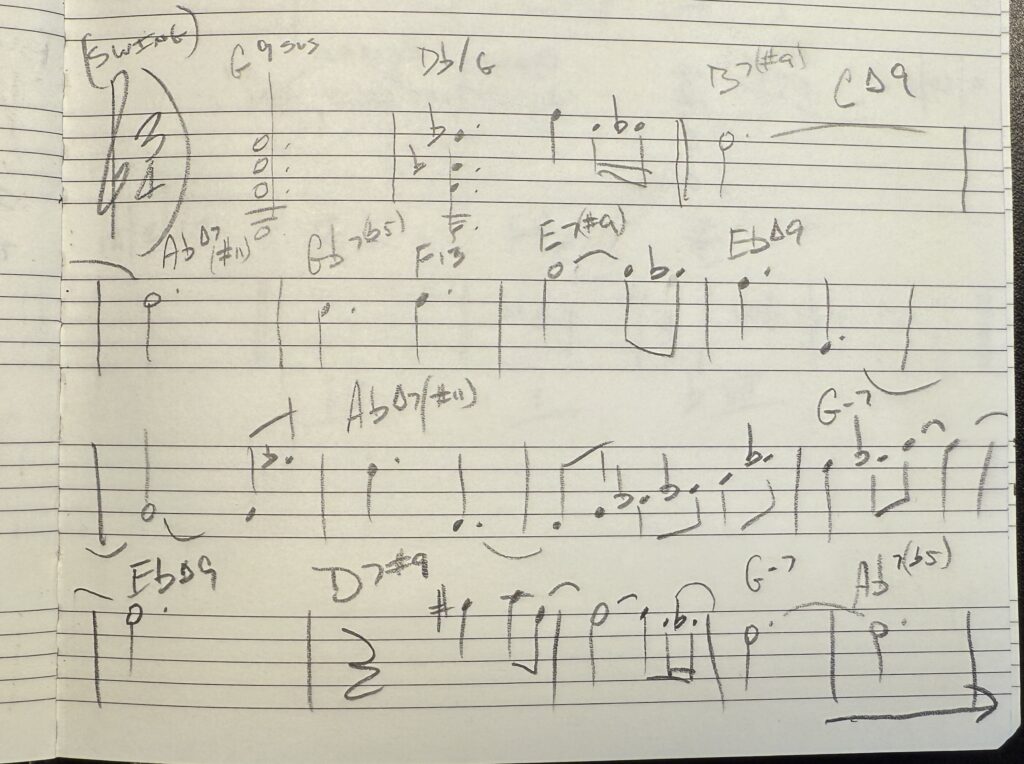 (SWING)
G9sus Db/G B7(#9) CΔ9
3
4
AbΔ7(#11) Gb7(b5) F13 E7(#9) EbΔ9
AbΔ7(#11) G-7
EbΔ9 D7#9 G-7 Ab7(b5)